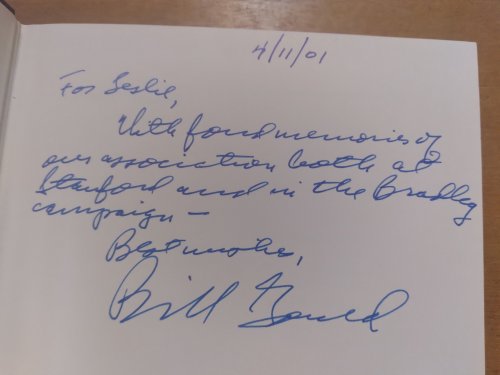 4/11/01
For Leslie,
With fond memories of
our association both at
Stanford and in the Bradley
campaign —
Best wishes,
Bill Gould